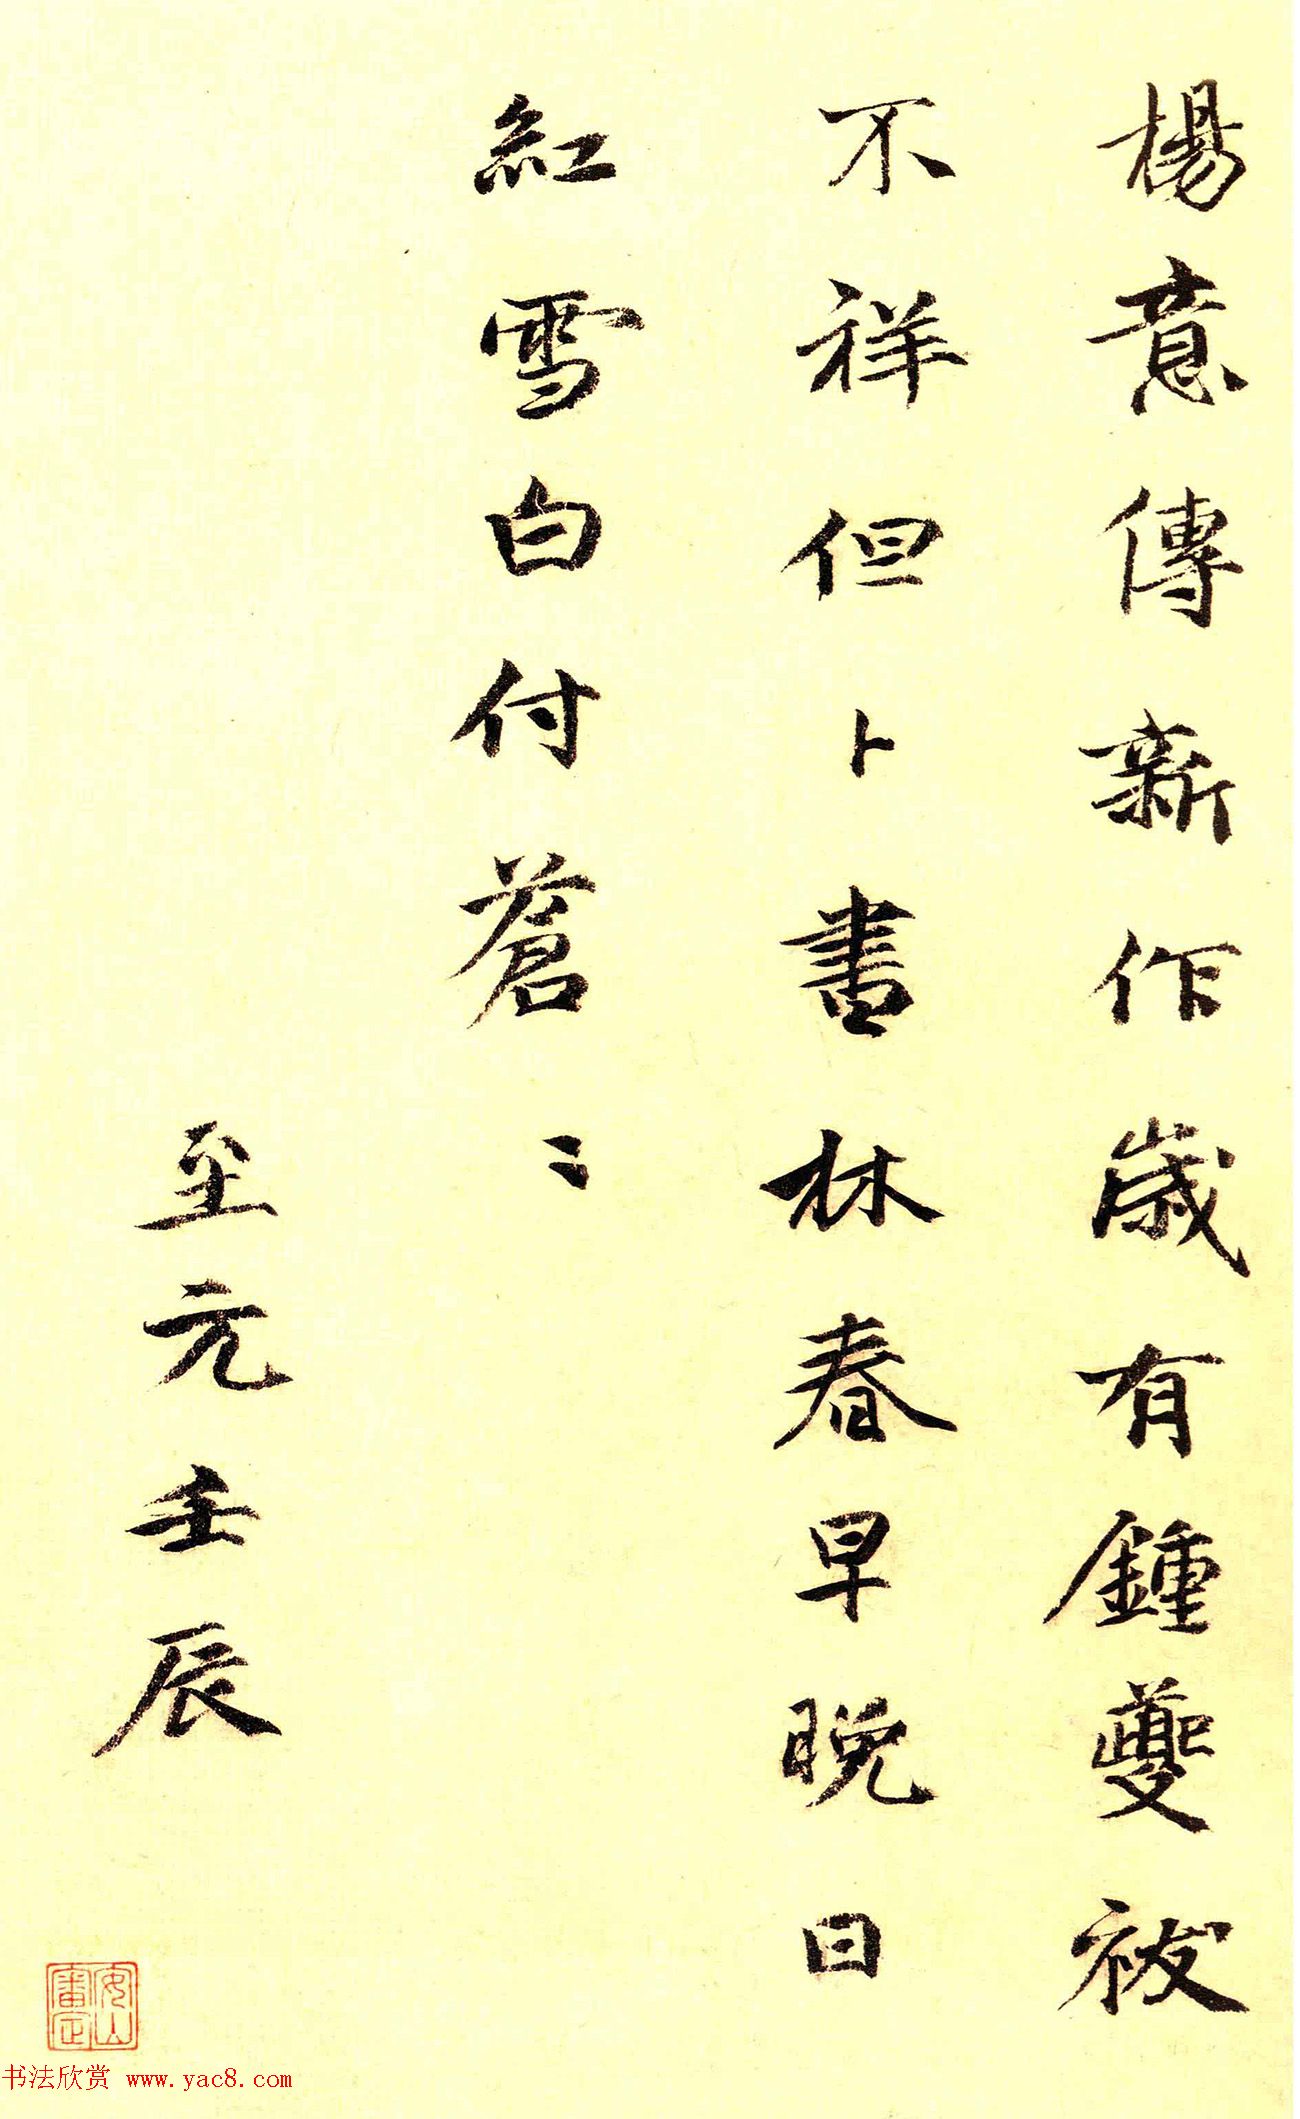 楊意傳新作歲有鍾夔祓
不祥但卜書林春早晚日
紅雪白付蒼〻
至元壬辰
安山審定
书法欣赏 www.yac8.com